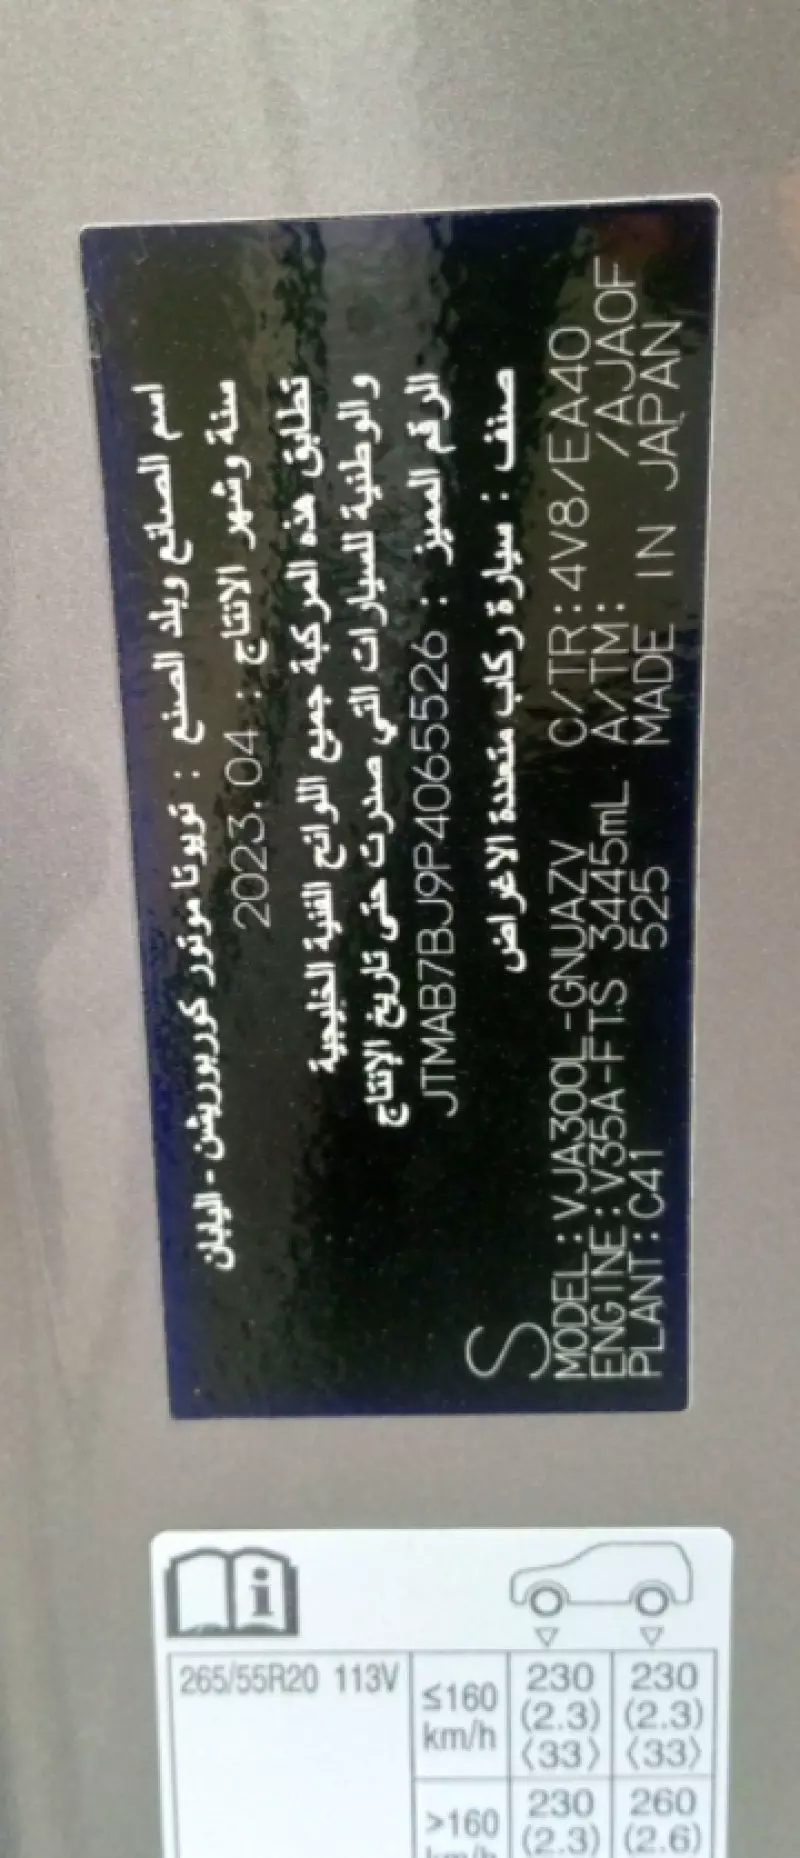 اسم الصانع وبلد الصنع : تويوتا موتور كوربوريشن - اليابان
سنة وشهر الانتاج : 2023.04
تطابق هذه المركبة جميع اللوائح الفنية الخليجية
والوطنية للسيارات التي صدرت حتى تاريخ الإنتاج
الرقم المميز : JTMAB7BJ9P4065526
صنف : سيارة ركاب متعددة الاغراض
S
MODEL:VJA300L-GNUAZV C/TR:4V8/EA40
ENGINE:V35A-FTS 3445mL A/TM: /AJA0F
PLANT:C41 525 MADE IN JAPAN
i
265/55R20 113V ≤160 km/h 230 (2.3) ⟨33⟩ 230 (2.3) ⟨33⟩
>160 km/h 230 (2.3) 260 (2.6)